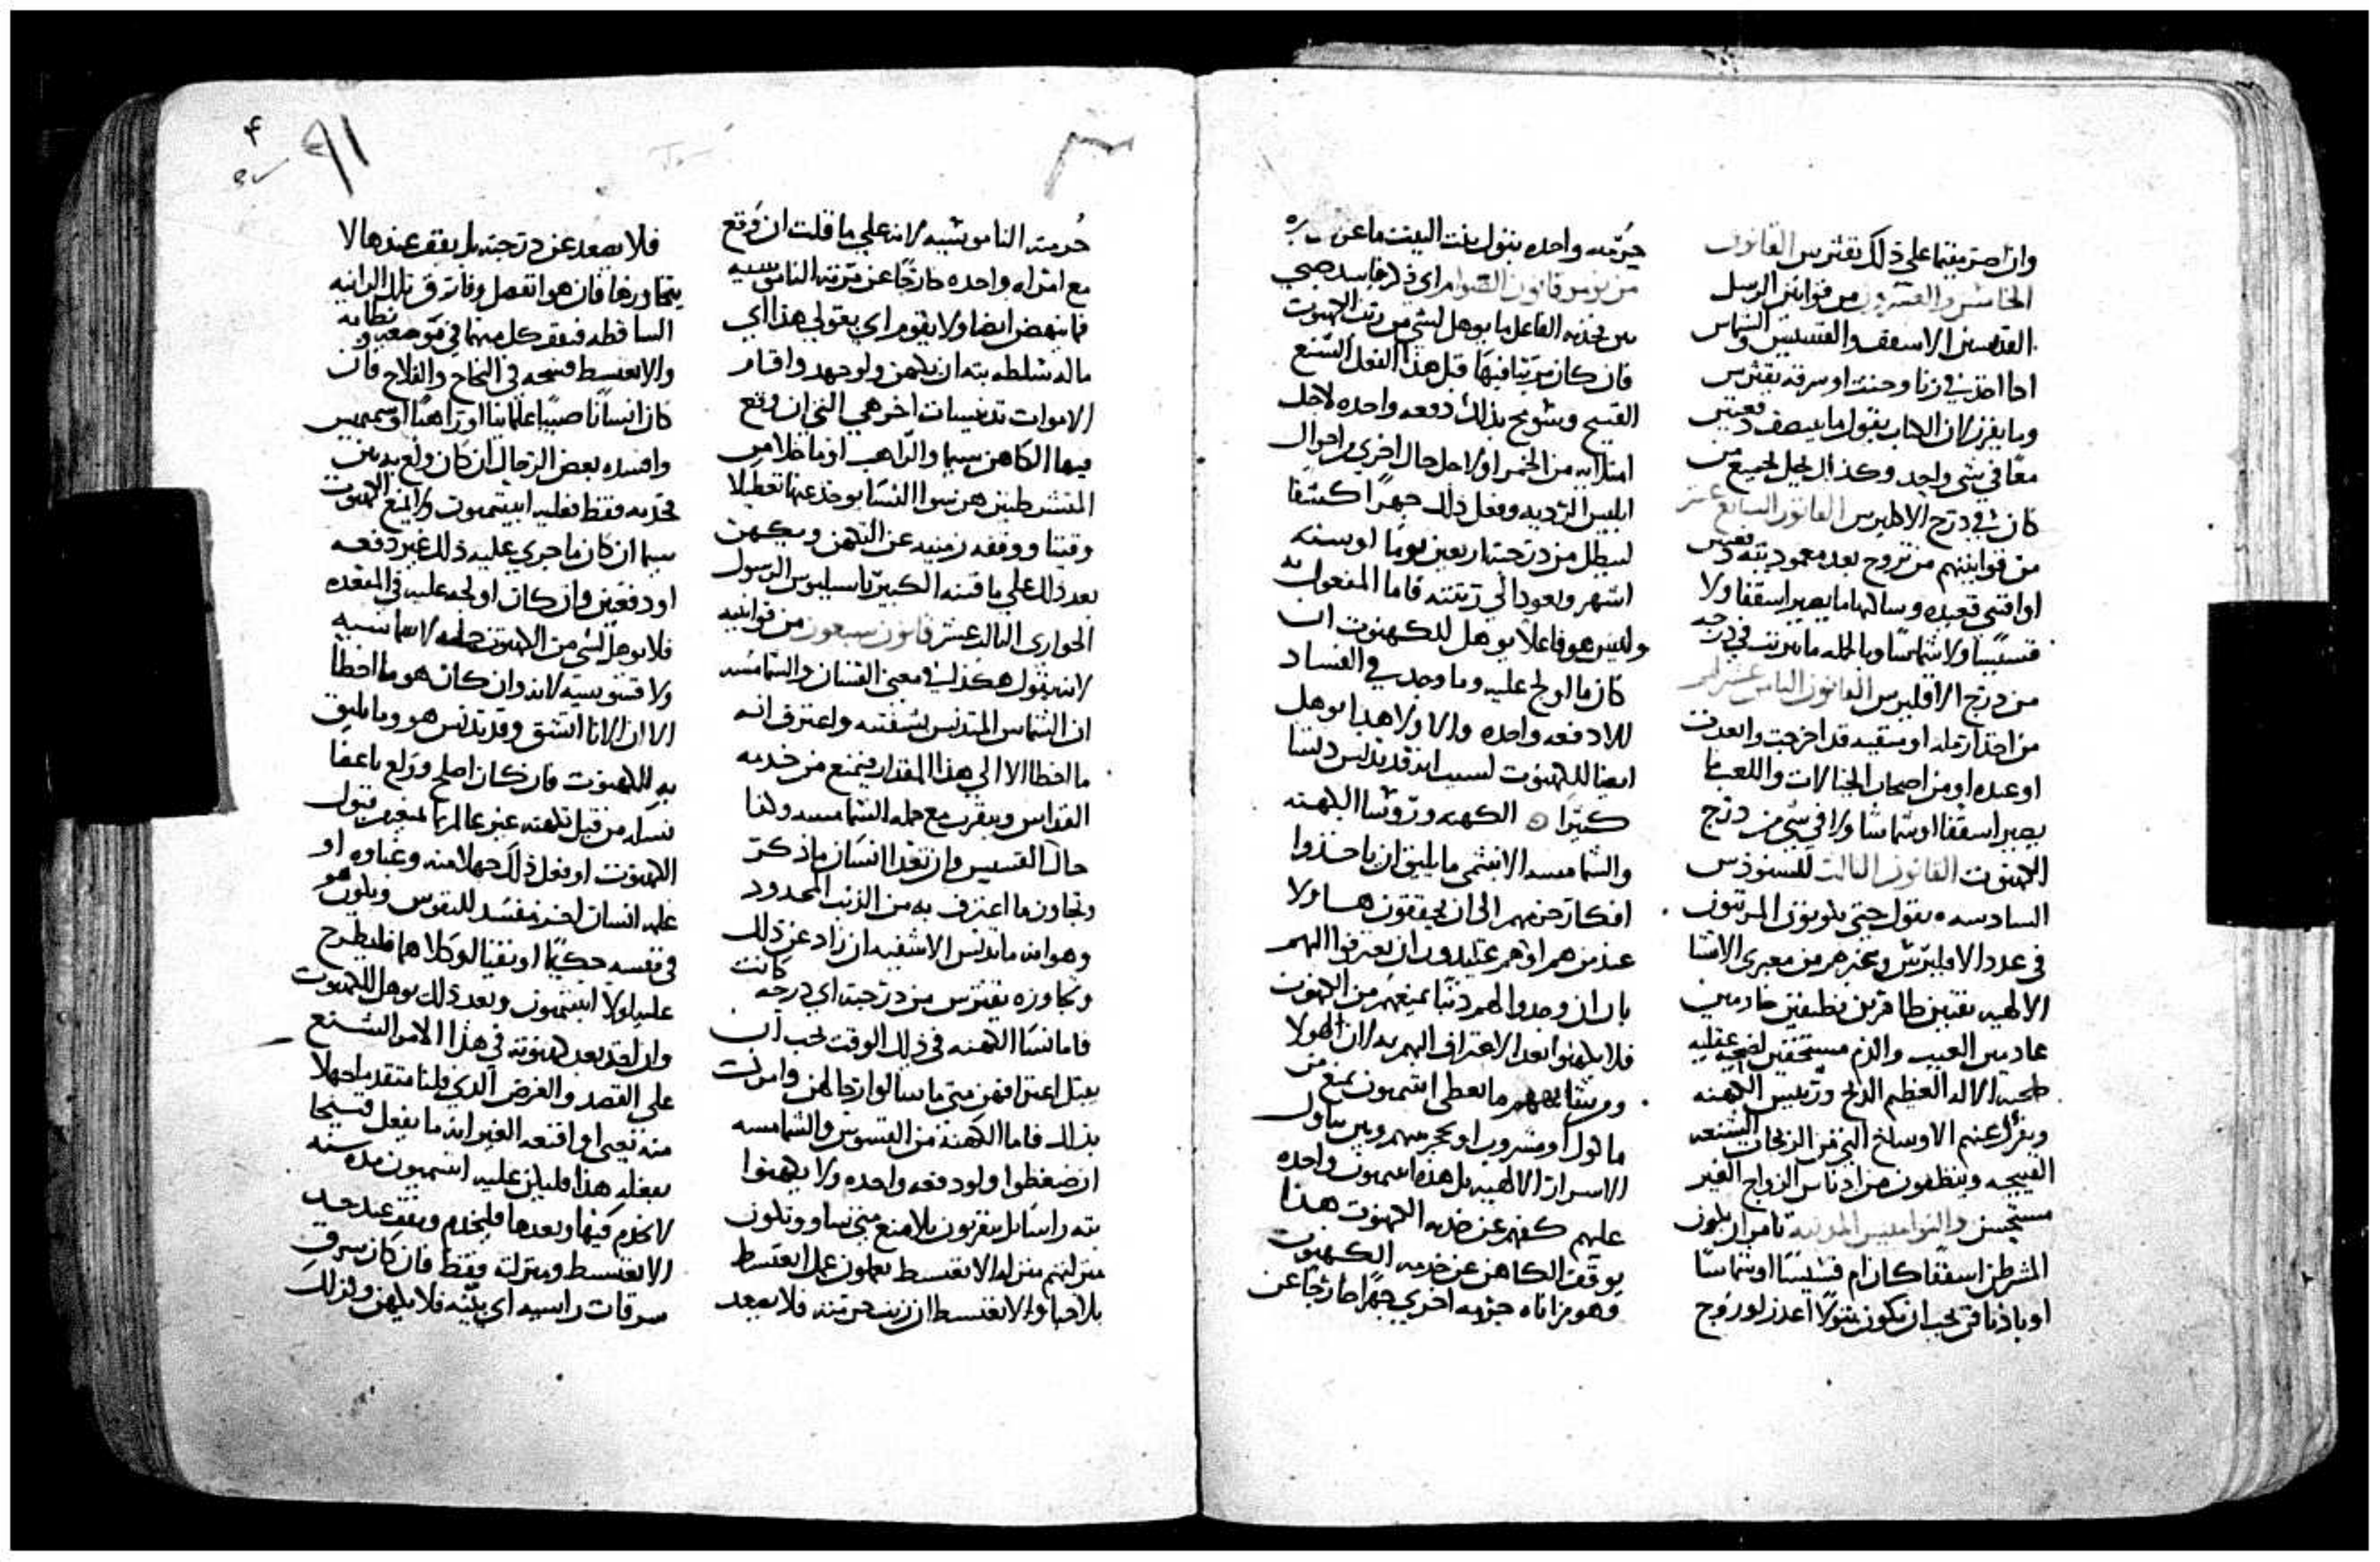 وان اصر مقيما على ذلك يقترس القانون
الخامس والعشرون من قوانين الرسل
القديسين الاسقف والقسيس والشماس
اذا اخذ في زنا وحنث او سرقه يقترس
وما يفرز لان الكتاب يقول ما ينصف دفعتين
معا في شي واحد وكذلك لجميع من
كان في درج الاكليرس القانون السابع عشر
من قوانينهم من تزوج بعد معموديته دفعتين
او اقتنى ما يصير اسقفا ولا
قسيسا ولا شماسا وبالجمله ما يترتب في درجه
من درج الاقليرس القانون الثامن عشر لهم
من اخذ ارمله او قد اخرجت وابعدت
او عبده او من اصحاب الخيالات واللعب ما
يصير اسقفا او شماسا ولا في شي من درج
الكهنوت القانون الثالث للسنودس
السادسه يقول حتى يكونون المرتبون
في عدد الاقليرس وغيرهم من
الالهيه نقيين طاهرين نظيفين خادمين
عادمين العيب والذم مستحقين لضحيه عقليه
ضحيه الاله العظيم الذبح ورييس الكهنه
عنهم الاوساخ التي من الزيجات الشنعه
القبيحه وينظفون من ادناس الزواج الغير
مستحسن والنواميس المدنيه تامر ان يكون
المشرطن اسقفا كان ام قسيسا او شماسا
يجب ان يكون بتولا اعذر لو زوج
حرمه واحده بتول بنت البيت
من قانون الصوام اي ذكر فاسد صبي
الفاعل ما يوهل لشي من رتب الكهنوت
فان كان مرتبا فيها قبل هذا الفعل الشنع
القبيح وشوبح بذلك دفعه واحده لاجل
امتلايه من الخمر او لاجل حال اخرى من احوال
ابليس الرديه وفعل ذلك جهرا كشفا
ليبطل من درجته اربعين يوما او سنه
اشهر ويعود الى رتبته فاما المفعول به
وليس هو فاعلا يوهل للكهنوت ان
كان ما اولج عليه وما وجد في الفساد
للا دفعه واحده والا ولا هذا يوهل
ايضا للكهنوت لسبب انه قد تدنس دنسا
كثيرا الكهنه وروسا الكهنه
والشمامسه الانبثمى ما يليق ان ياخذوا
افكار حزنهم الى ان يحققون هاولا
عند من هم او هم عتيدون ان يعترفوا اليهم
بان ان وجدوا لهم ذنبا يمنعهم من الكهنوت
فلا يكهنوا بعد الاعتراف اليهم به لان هولا
ما يعطى ابتميون يمنع من
ماكول او مشروب او تحرمهم ومن تناول
الاسرار الالهيه بل هذه ابتميون واحده
عليهم كفهم عن خدمه الكهنوت هذا
يوقف الكاهن عن خدمه الكهنوت
وهو من اتاه حرمه اخرى جهرا خارجا عن
حرمته الناموسيه لانه على ما قلت ان وقع
مع امراه واحده خارجا عن حرمته الناموسيه
فما ينهض ايضا ولا يقوم اي يقول هذا اي
ما له سلطه بته ان يكهن ولو جهد واقام
الاموات تدنيسات اخر هي التي ان وقع
فيها الكاهن سيما والراهب او ما خلا من
المتشرطنين هن سوا النسا يوخذ عنها تعطيلا
وقتيا ووقفه زمنيه عن التكهن ويكهن
بعد ذلك على ما قننه الكبير باسيليوس الرسول
الحواري الثالث عشر قانون سبعون من قوانينه
لانه يقول هكذا في معنى القسان والشمامسه
ان الشماس المتدنس بشفتيه واعترف انه
ما اخطا الا الى هذا المقدار فيمنع من خدمه
القداس ويتقرب مع جمله الشمامسه وكذا
حال القسيس وان تعدا انسان ما ذكر
وتجاوز ما اعترف به من الذنب المحدود
وهو انه ما تدنس الا شفتيه ان زاد عن ذلك
وتجاوزه يقترس من درجته اي درجه كانت
فاما نسا الكهنه في ذلك الوقت يجب ان
يقبل اعترافهن متى ما سالوا رجالهن وامرت
بذلك فاما الكهنه من القسوس والشمامسه
ان ضغطوا ولو دفعه واحده ولا يكهنوا
بته راسا بل يتقربون بلا منع متى شاوا وتكون
منزلتهم منزله الاناغنسط يعملون عمل اناغنسط
بلا حيا والاناغنسط ان زنت حرمته فلا يصعد
فلا يصعد عن درجته بل يقف عندها لا
يتجاوزها فان هو انفصل وفارق تلك الزانيه
الساقطه فيقف كل منهما في موضعه ونظامه
والاناغنسط فينجح في النجاح والفلاح فان
كان انسانا صبيا علمانيا او راهبا
وافسده بعض الرجال ان كان ولع به بين
فخذيه فقط فعليه ابيتميون ولا يمنع الكهنوت
سيما ان كان ما جرى عليه ذلك غير دفعه
او دفعتين وان كان اولج عليه في المقعده
فلا يوهل لشي من الكهنوت جمله لا شماسيه
ولا قسوسيه لانه وان كان هو ما اخطا
الا ان الانا انشق وقد تدنس هو وما يليق
به للكهنوت فان كان اصلح وولع باعضا
نسا من قبل تكهنه غير عالم بما يمنعه من قبول
الكهنوت او فعل ذلك جهلا منه وغباوه او
علمه انسان اخر مفسد للنفوس ويكون هو
في نفسه حكيما او نقيا او كلاهما فليطرح
عليه اولا ابيتميون وبعد ذلك يوهل للكهنوت
وان اخذ بعد كهنوته في هذا الامر الشنع
على القصد والغرض الذي قلنا متقدما جهلا
منه نعنى او اقنعه الغير انه ما يفعل قبيحا
بفعله هذا فليكن عليه ابتميون مده سنه
لا يخدم فيها وبعدها فليخدم ويقف عند حد
الاناغنسط ومنزلته فقط فان كان سرق
سرقات راسيه اي بيته فلا يكهن وكذلك